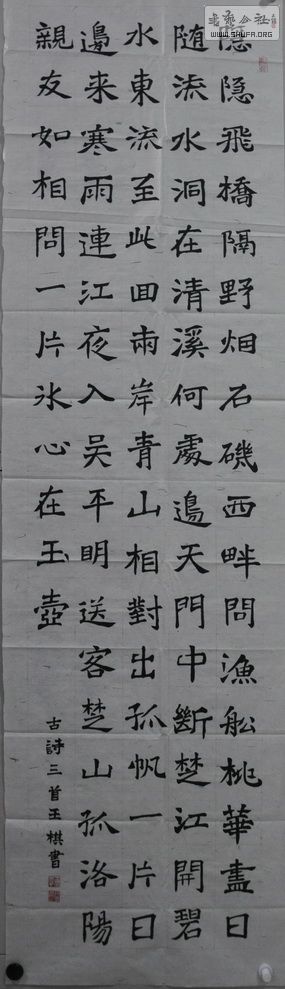 書藝公社
WWW.SHUFA.ORG
隐隐飛橋隔野畑石磯西畔問漁舩桃華盡日
随流水洞在清溪何處邊天門中斷楚江開碧
水東流至此回兩岸青山相對出孤帆一片日
邊来寒雨連江夜入吴平明送客楚山孤洛陽
親友如相問一片氷心在玉壺
古詩三首王棋書